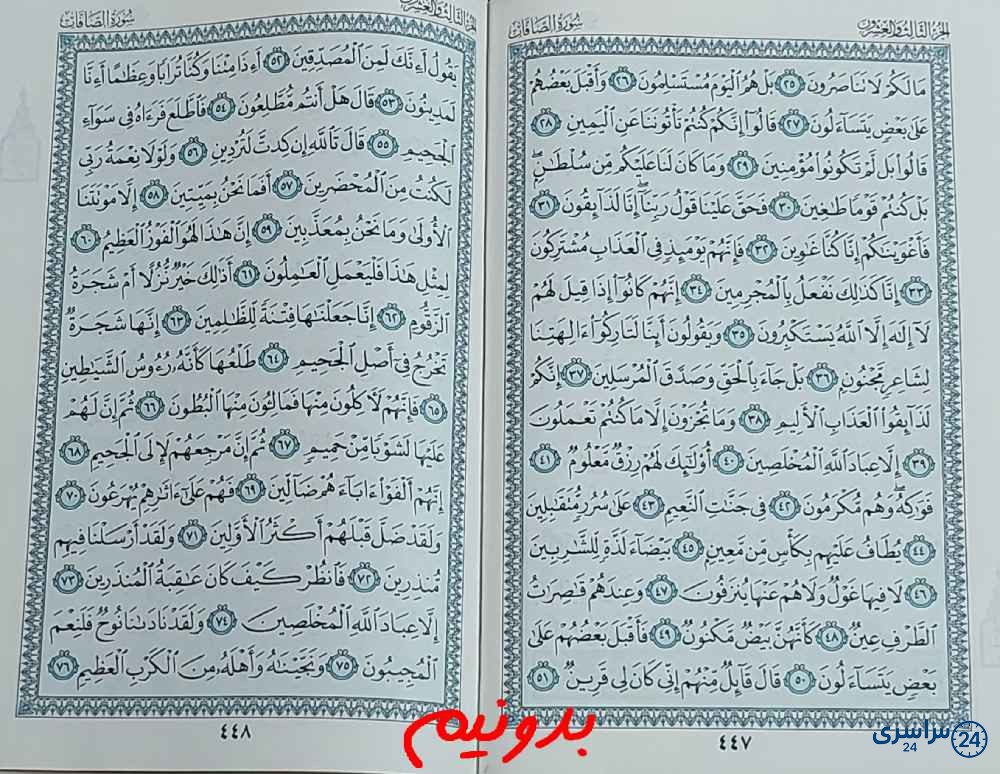 الجزء الثالث والعشرون
سورة الصافات
مَا لَكُمْ لَا تَنَاصَرُونَ ٢٥ بَلْ هُمُ الْيَوْمَ مُسْتَسْلِمُونَ ٢٦ وَأَقْبَلَ بَعْضُهُمْ
عَلَىٰ بَعْضٍ يَتَسَاءَلُونَ ٢٧ قَالُوا إِنَّكُمْ كُنْتُمْ تَأْتُونَنَا عَنِ الْيَمِينِ ٢٨
قَالُوا بَلْ لَمْ تَكُونُوا مُؤْمِنِينَ ٢٩ وَمَا كَانَ لَنَا عَلَيْكُمْ مِنْ سُلْطَانٍ ۖ
بَلْ كُنْتُمْ قَوْمًا طَاغِينَ ٣٠ فَحَقَّ عَلَيْنَا قَوْلُ رَبِّنَا ۖ إِنَّا لَذَائِقُونَ ٣١
فَأَغْوَيْنَاكُمْ إِنَّا كُنَّا غَاوِينَ ٣٢ فَإِنَّهُمْ يَوْمَئِذٍ فِي الْعَذَابِ مُشْتَرِكُونَ
٣٣ إِنَّا كَذَٰلِكَ نَفْعَلُ بِالْمُجْرِمِينَ ٣٤ إِنَّهُمْ كَانُوا إِذَا قِيلَ لَهُمْ
لَا إِلَٰهَ إِلَّا اللَّهُ يَسْتَكْبِرُونَ ٣٥ وَيَقُولُونَ أَئِنَّا لَتَارِكُو آلِهَتِنَا
لِشَاعِرٍ مَجْنُونٍ ٣٦ بَلْ جَاءَ بِالْحَقِّ وَصَدَّقَ الْمُرْسَلِينَ ٣٧ إِنَّكُمْ
لَذَائِقُو الْعَذَابِ الْأَلِيمِ ٣٨ وَمَا تُجْزَوْنَ إِلَّا مَا كُنْتُمْ تَعْمَلُونَ
٣٩ إِلَّا عِبَادَ اللَّهِ الْمُخْلَصِينَ ٤٠ أُولَٰئِكَ لَهُمْ رِزْقٌ مَعْلُومٌ ٤١
فَوَاكِهُ ۖ وَهُمْ مُكْرَمُونَ ٤٢ فِي جَنَّاتِ النَّعِيمِ ٤٣ عَلَىٰ سُرُرٍ مُتَقَابِلِينَ
٤٤ يُطَافُ عَلَيْهِمْ بِكَأْسٍ مِنْ مَعِينٍ ٤٥ بَيْضَاءَ لَذَّةٍ لِلشَّارِبِينَ
٤٦ لَا فِيهَا غَوْلٌ وَلَا هُمْ عَنْهَا يُنْزَفُونَ ٤٧ وَعِنْدَهُمْ قَاصِرَاتُ
الطَّرْفِ عِينٌ ٤٨ كَأَنَّهُنَّ بَيْضٌ مَكْنُونٌ ٤٩ فَأَقْبَلَ بَعْضُهُمْ عَلَىٰ
بَعْضٍ يَتَسَاءَلُونَ ٥٠ قَالَ قَائِلٌ مِنْهُمْ إِنِّي كَانَ لِي قَرِينٌ ٥١
٤٤٧
الجزء الثالث والعشرون
سورة الصافات
يَقُولُ أَإِنَّكَ لَمِنَ الْمُصَدِّقِينَ ٥٢ أَإِذَا مِتْنَا وَكُنَّا تُرَابًا وَعِظَامًا أَإِنَّا
لَمَدِينُونَ ٥٣ قَالَ هَلْ أَنْتُمْ مُطَّلِعُونَ ٥٤ فَاطَّلَعَ فَرَآهُ فِي سَوَاءِ
الْجَحِيمِ ٥٥ قَالَ تَاللَّهِ إِنْ كِدْتَ لَتُرْدِينِ ٥٦ وَلَوْلَا نِعْمَةُ رَبِّي
لَكُنْتُ مِنَ الْمُحْضَرِينَ ٥٧ أَفَمَا نَحْنُ بِمَيِّتِينَ ٥٨ إِلَّا مَوْتَتَنَا
الْأُولَىٰ وَمَا نَحْنُ بِمُعَذَّبِينَ ٥٩ إِنَّ هَٰذَا لَهُوَ الْفَوْزُ الْعَظِيمُ ٦٠
لِمِثْلِ هَٰذَا فَلْيَعْمَلِ الْعَامِلُونَ ٦١ أَذَٰلِكَ خَيْرٌ نُزُلًا أَمْ شَجَرَةُ
الزَّقُّومِ ٦٢ إِنَّا جَعَلْنَاهَا فِتْنَةً لِلظَّالِمِينَ ٦٣ إِنَّهَا شَجَرَةٌ
تَخْرُجُ فِي أَصْلِ الْجَحِيمِ ٦٤ طَلْعُهَا كَأَنَّهُ رُءُوسُ الشَّيَاطِينِ
٦٥ فَإِنَّهُمْ لَآكِلُونَ مِنْهَا فَمَالِئُونَ مِنْهَا الْبُطُونَ ٦٦ ثُمَّ إِنَّ لَهُمْ
عَلَيْهَا لَشَوْبًا مِنْ حَمِيمٍ ٦٧ ثُمَّ إِنَّ مَرْجِعَهُمْ لَإِلَى الْجَحِيمِ ٦٨
إِنَّهُمْ أَلْفَوْا آبَاءَهُمْ ضَالِّينَ ٦٩ فَهُمْ عَلَىٰ آثَارِهِمْ يُهْرَعُونَ ٧٠
وَلَقَدْ ضَلَّ قَبْلَهُمْ أَكْثَرُ الْأَوَّلِينَ ٧١ وَلَقَدْ أَرْسَلْنَا فِيهِمْ
مُنْذِرِينَ ٧٢ فَانْظُرْ كَيْفَ كَانَ عَاقِبَةُ الْمُنْذَرِينَ ٧٣
إِلَّا عِبَادَ اللَّهِ الْمُخْلَصِينَ ٧٤ وَلَقَدْ نَادَانَا نُوحٌ فَلَنِعْمَ
الْمُجِيبُونَ ٧٥ وَنَجَّيْنَاهُ وَأَهْلَهُ مِنَ الْكَرْبِ الْعَظِيمِ ٧٦
٤٤٨
بدونیم
سراسری 24
24